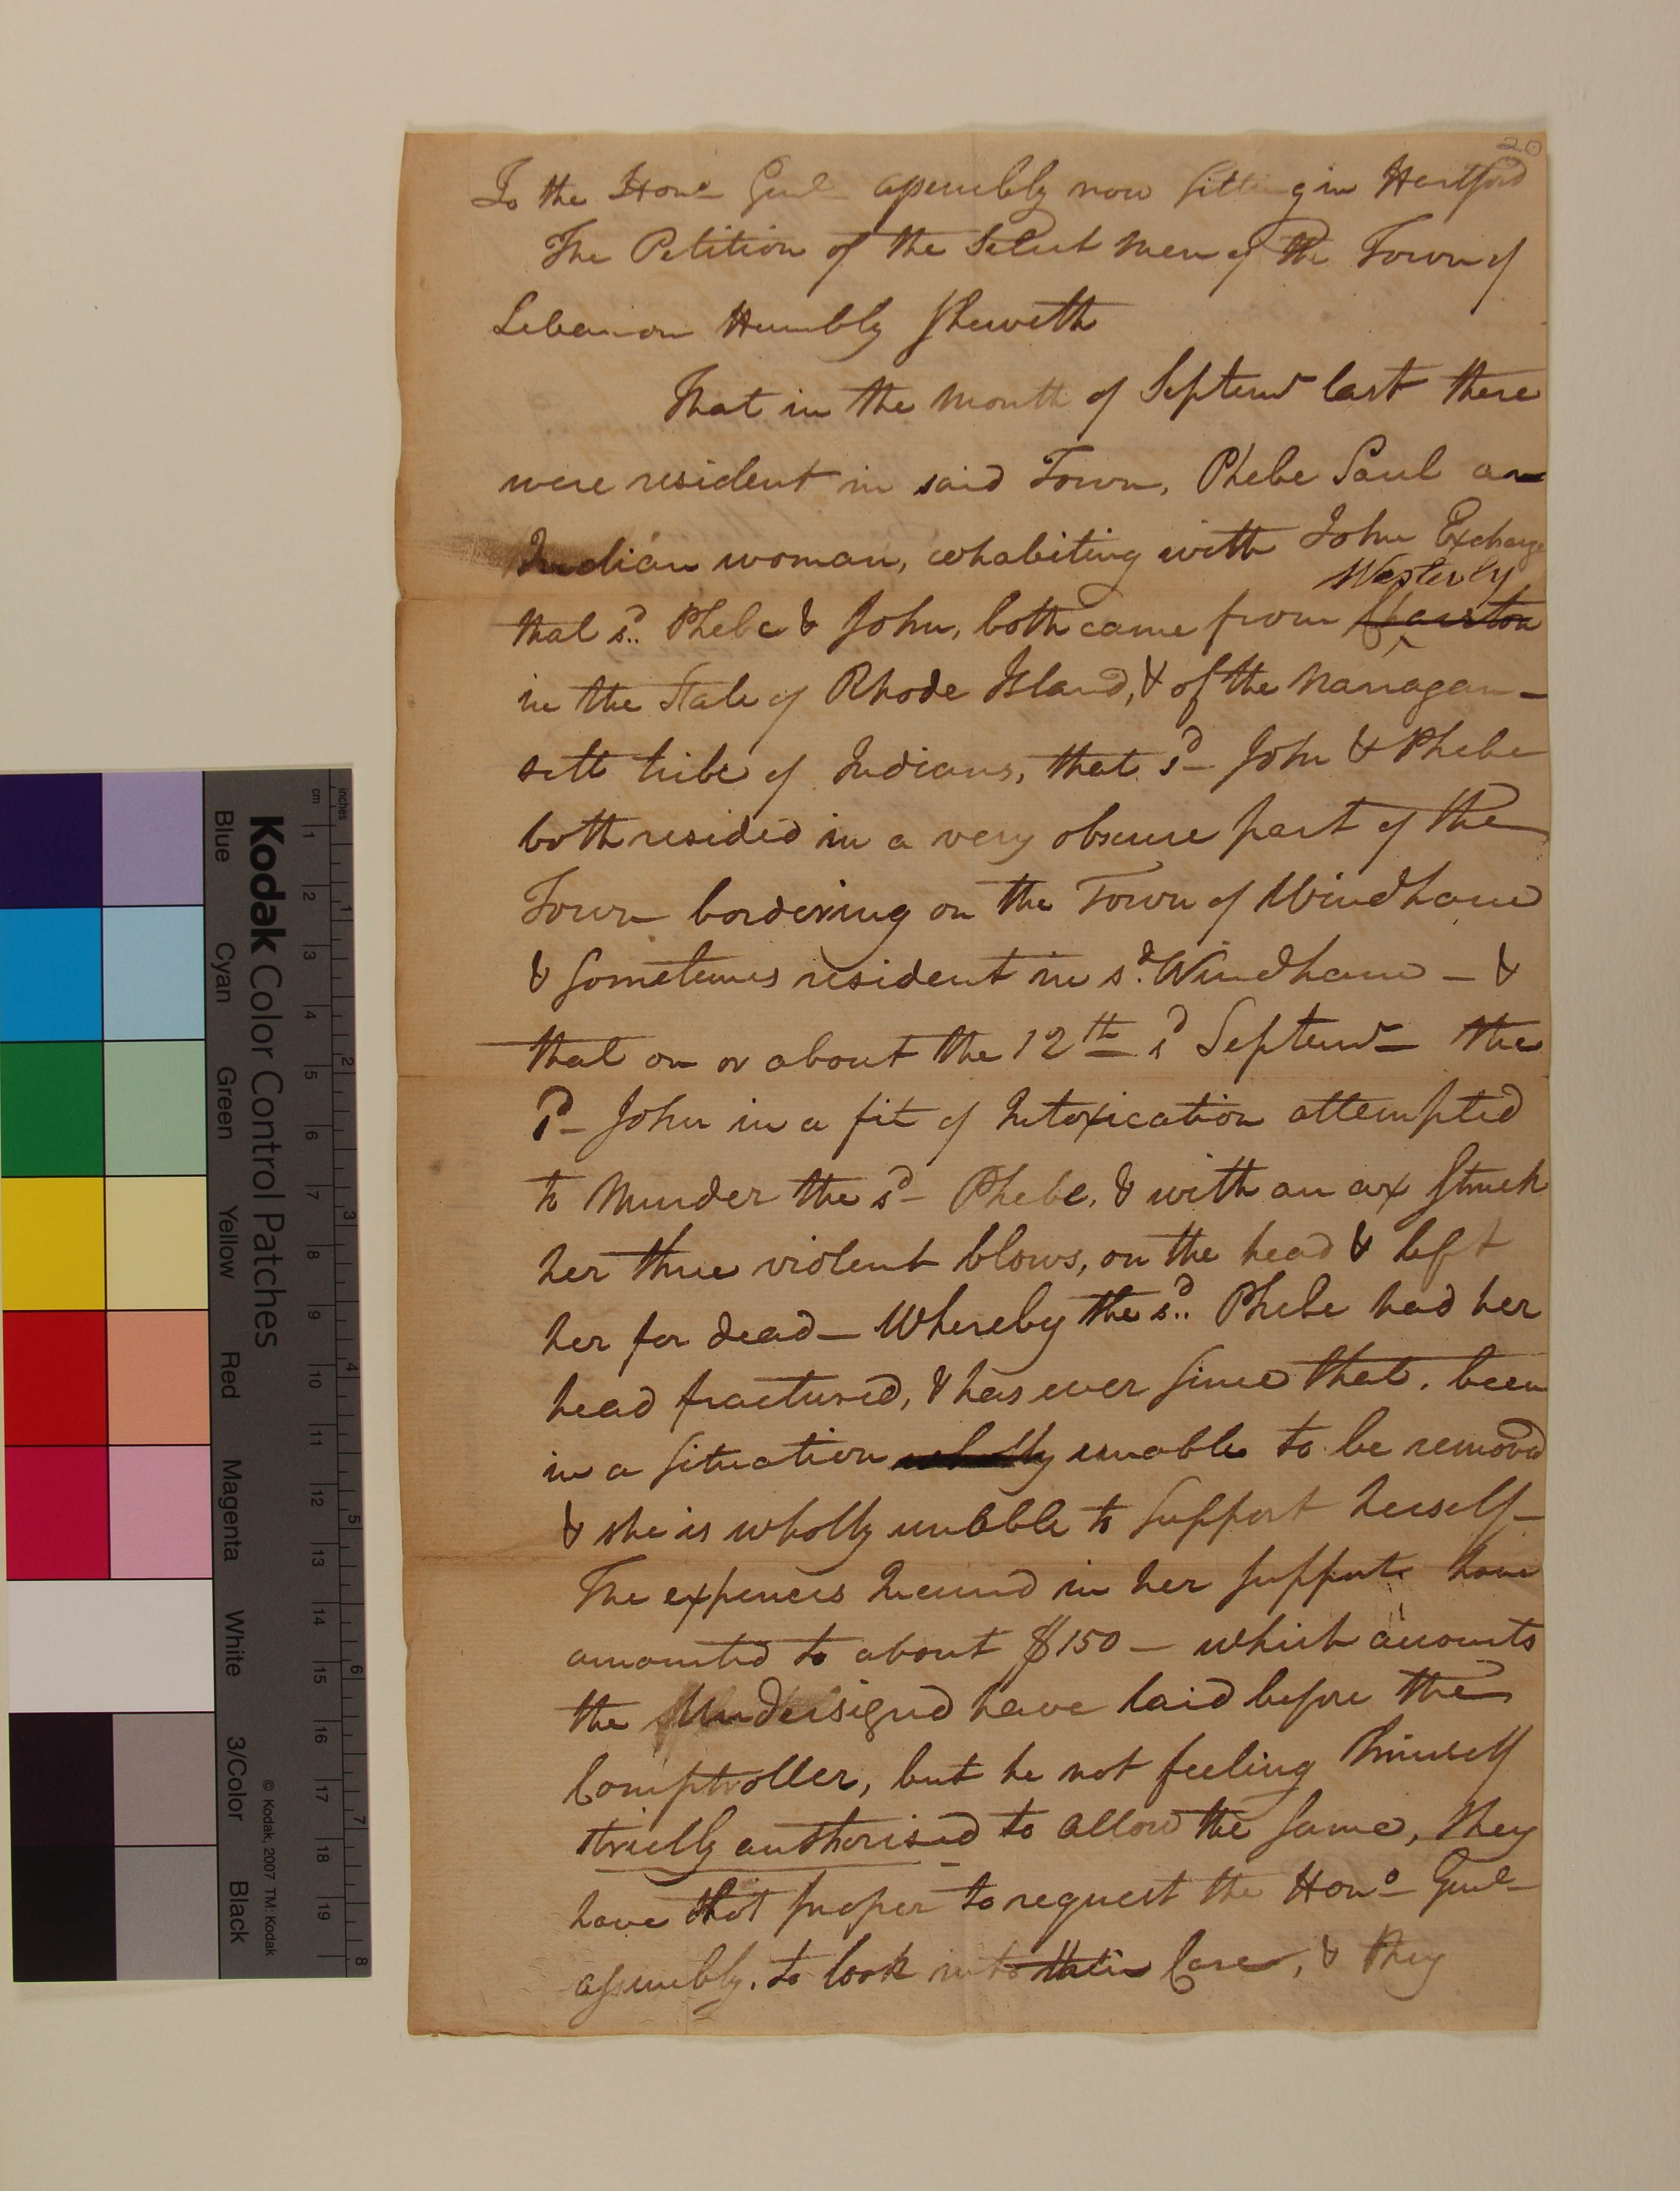 20
To the Honl Genl assembly now sitting in Hartford
The Petition of the Select Men of the Town of
Lebanon Humbly Sheweth
That in the Month of Septemr last there
were resident in said Town, Phebe Paul an
Indian woman, cohabiting with John Exchange
Westerly
that sd. Phebe & John, both came from
in the State of Rhode Island, & of the Narragan-
sett tribe of Indians, that sd John & Phebe
both resided in a very obscure part of the
Town bordering on the Town of Windham
& sometimes resident in sd. Windham - &
that on or about the 12th sd Septemr - the
sd John in a fit of Intoxication attempted
to Murder the sd Phebe, & with an ax struck
her three violent blows, on the head & left
her for dead - Whereby the sd.. Phebe had her
head fractured, & has ever since that, been
in a situation wholly unable to be removd
& she is wholly unable to support herself -
The expences Incurrd in her support have
amounted to about $150 - which accounts
the Undersignd have laid before the
Comptroller, but he not feeling himself
strictly authorised to allow the same, they
have thot proper to request the Hono Genl
assembly. to look into their Case, & they
Kodak Color Control Patches
Blue Cyan Green Yellow Red Magenta White 3/Color Black
© Kodak, 2007 TM: Kodak
inches 1 2 3 4 5 6 7 8
cm 1 2 3 4 5 6 7 8 9 10 11 12 13 14 15 16 17 18 19